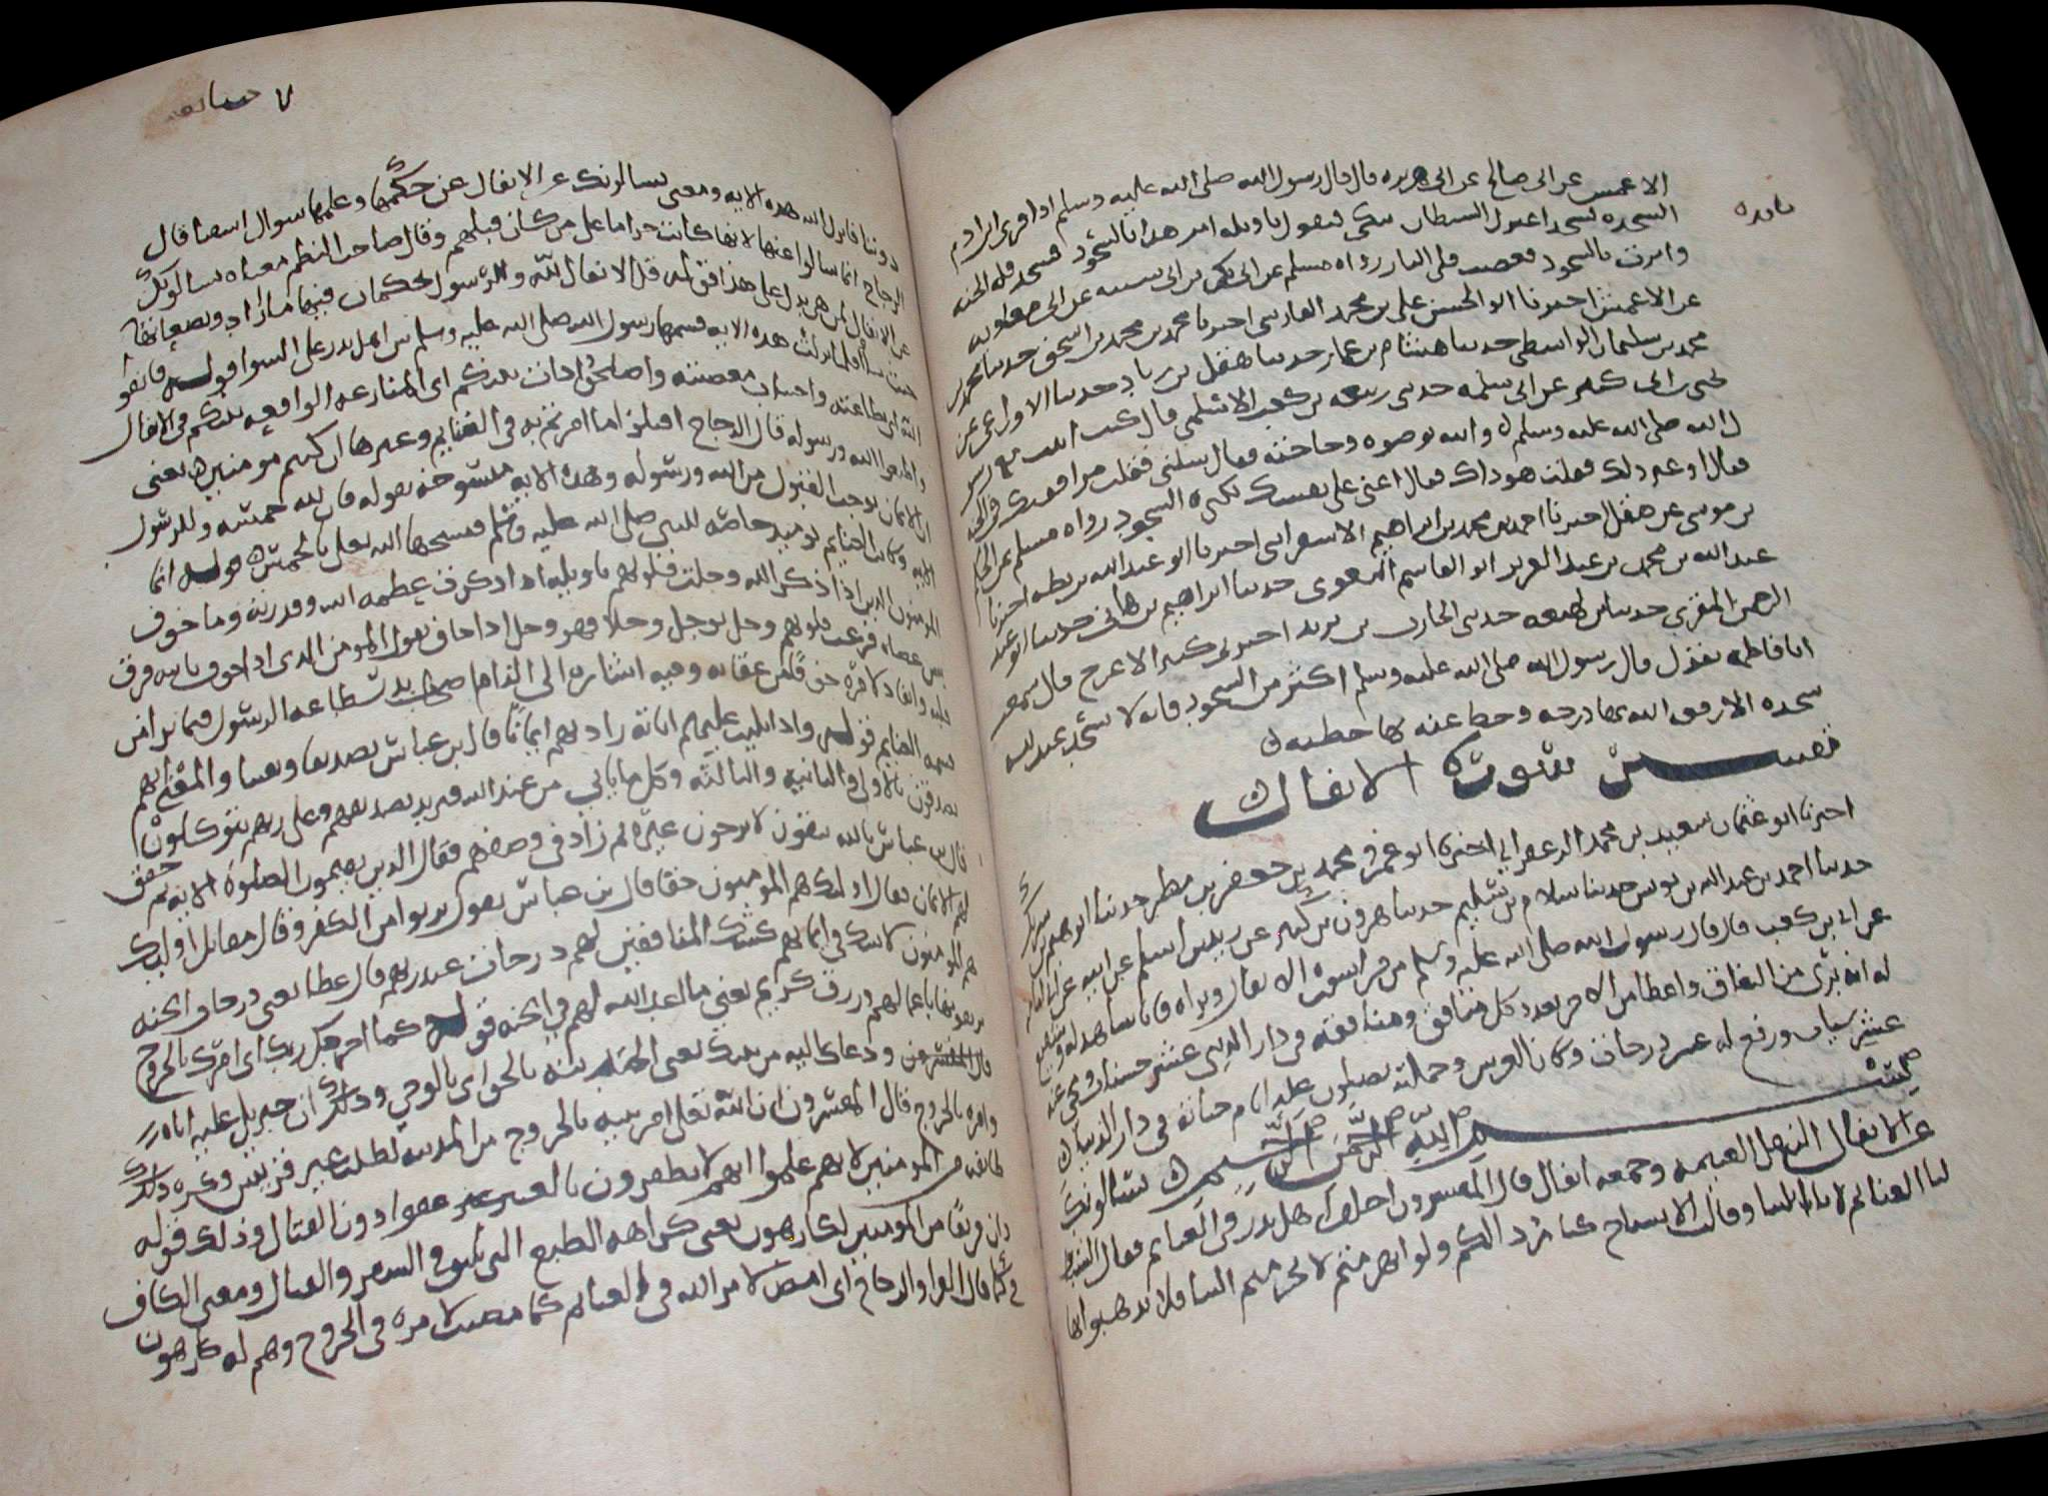 الاعمش عن ابى صالح عن ابى هريره قال قال رسول الله صلى الله عليه وسلم اذا قرى ابن ادم
السجده فسجد اعتزل الشيطان يبكى فيقول يا ويله امر هذا بالسجود فسجد فله الجنه
وامرت بالسجود فعصيت فلى النار رواه مسلم عن ابى بكر بن ابى شيبه عن ابى معاويه
عن الاعمش اخبرنا ابو الحسن على بن محمد الفارسى اخبرنا محمد بن محمد بن اسحق حدثنا محمد بن
محمد بن سليمان الواسطى حدثنا هشام بن عمار حدثنا هقل بن زياد حدثنا الاوزاعى عن
يحيى بن ابى كثير عن ابى سلمه حدثنى ربيعه بن كعب الاسلمى قال كنت ابيت مع رسو
ل الله صلى الله عليه وسلم واتيه بوضوه وحاجته فقال سلنى فقلت مرافقتك فى الجنه
فقال او غير ذلك فقلت هو ذاك قال اعنى على نفسك بكثره السجود رواه مسلم عن الحكم
بن موسى عن هقل اخبرنا احمد بن محمد بن ابراهيم الاسفراينى اخبرنا ابو عبد الله بن بطه اخبرنا
عبد الله بن محمد بن عبد العزيز ابو القاسم البغوى حدثنا ابراهيم بن هانى حدثنا ابو عبد
الرحمن المقرى حدثنا ابن لهيعه حدثنى الحارث بن يزيد اخبرنى كثير الاعرج قال سمعت
ابا فاطمه يقول قال رسول الله صلى الله عليه وسلم اكثر من السجود فانه لا يسجد عبد لله
سجده الا رفعه الله بها درجه وحط عنه بها خطيه
تفسير سورة الانفال
اخبرنا ابو عثمان سعيد بن محمد الزعفرانى اخبرنا ابو عمرو محمد بن جعفر بن مطر حدثنا ابرهيم بن شريك
حدثنا احمد بن عبد الله بن يونس حدثنا سلام بن سليم حدثنا هرون بن كثير عن زيد بن اسلم عن ابيه عن ابى امامه
عن ابى بن كعب قال قال رسول الله صلى الله عليه وسلم من قرا سوره الانفال وبراه فانا شاهد له وشفيع
له انه برى من النفاق واعطى من الاجر بعدد كل منافق ومنافقه فى دار الدنيا عشر حسنات ومحى عنه
عشر سيات ورفع له عشر درجات وكان العرش وحملته يصلون عليه ايام حياته فى دار الدنيا
بسم الله الرحمن الرحيم يسالونك
عن الانفال النفل الغنيمه وجمعه انفال قال المفسرون اختلف اهل بدر فى الغنايم فقال الشبان
لنا الغنايم لانا ابلينا وقالت الاشياخ كنا ردا لكم ولو انهزمتم لانحزتم الينا فلا تذهبوا بها
دوننا فانزل الله هذه الايه ومعنى يسالونك عن الانفال عن حكمها وعلمها سوال استفتا قال
الزجاج انما سالوا عنها لانها كانت حراما على من كان قبلهم وقال صاحب النظم معناه يسالونك
عن الانفال لمن هى يدل على هذا قوله قل الانفال لله والرسول يحكمان فيها ما ارادا ويضعانها
حيث شاا فلما نزلت هذه الايه قسمها رسول الله صلى الله عليه وسلم بين اهل بدر على السوا قوله فاتقوا
الله اى بطاعته واجتناب معصيته واصلحوا ذات بينكم اى المنازعه الواقعه بينكم فى الانفال
واطيعوا الله ورسوله قال الزجاج اقبلوا ما امرتم به فى الغنايم وغيرها ان كنتم مومنين يعنى
ان الايمان يوجب القبول من الله ورسوله وهذه الايه منسوخه بقوله فان لله خمسه وللرسول
الايه وكانت الغنايم يوميذ خاصه للنبى صلى الله عليه وسلم فنسخها الله تعالى بالخمس قوله انما
المومنون الذين اذا ذكر الله وجلت قلوبهم تاويله اذا ذكرت عظمه الله وقدرته وما خوف
به من عصاه فزعت قلوبهم وجل يوجل وجلا فهو وجل اذا خاف يقول المومن الذى اذا خوف بالله فرق
قلبه وانقاد لامره خوفا من عقابه وفيه اشاره الى الزام اصحاب بدر طاعه الرسول فيما يرى من
قسمه الغنايم قوله واذا تليت عليهم اياته زادتهم ايمانا قال بن عباس تصديقا ويقينا والمعنى انهم
يصدقون بالاولى والثانيه والثالثه وكل ما ياتى من عند الله فيزيد تصديقهم وعلى ربهم يتوكلون
قال بن عباس بالله يثقون لا يرجون غيره ثم زاد فى وصفهم فقال الذين يقيمون الصلوه الايه ثم حقق
لهم الايمان فقال اوليك هم المومنون حقا قال بن عباس يقول بريوا من الكفر وقال مقاتل اوليك
هم المومنون لا شك فى ايمانهم كشك المنافقين لهم درجات عند ربهم قال عطا يعنى درجات الجنه
يرتقونها باعمالهم ورزق كريم يعنى ما اعد الله لهم فى الجنه قوله كما اخرجك ربك اى امرك بالخروج
ودعاك اليه من بيتك يعنى المدينه بالحق اى بالوحى وذلك ان جبريل عليه اتاه
وامره بالخروج قال المفسرون ان الله تعالى امر نبيه بالخروج من المدينه لطلب عير قريش وكره ذلك
طايفه من المومنين لانهم علموا انهم لا يظفرون بالعير عفوا دون القتال وذلك قوله
وان فريقا من المومنين لكارهون يعنى كراهه الطبع التى تلحق فى السفر والقتال ومعنى الكاف
فى كما قال الفرا والزجاج اى امض لامر الله فى الغنايم كما مضيت لامره فى الخروج وهم له كارهون